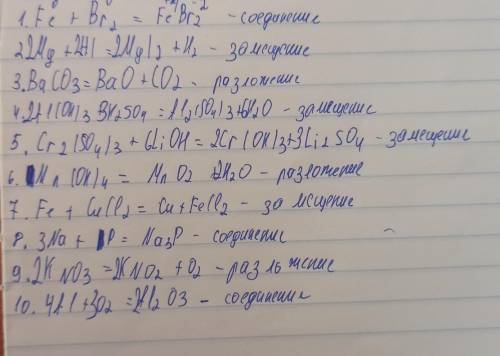 1. Fe⁰ + Br₂ = FeBr₂⁻² - соединение
2 2Mg + 2HI = 2MgI₂ + H₂ - замещение
3. BaCO₃ = BaO + CO₂ - разложение
4. 2Al(OH)₃ 3H₂SO₄ = Al₂(SO₄)₃ + 6H₂O - замещение
5. Cr₂(SO₄)₃ + 6LiOH = 2Cr(OH)₃ + 3Li₂SO₄ - замещение
6. Mn(OH)₄ = MnO₂ 2H₂O - разложение
7. Fe + CuCl₂ = Cu + FeCl₂ - замещение
8. 3Na + P = Na₃P - соединение
9. 2KNO₃ = 2KNO₂ + O₂ - разложение
10. 4Al + 3O₂ = 2Al₂O₃ - соединение